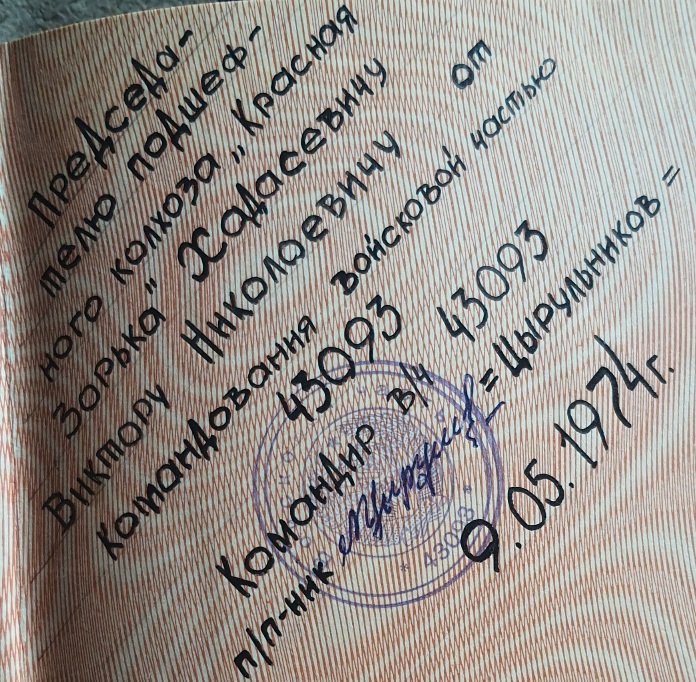 Председа-
телю подшеф-
ного колхоза „Красная
Зорька" Хадасевичу
Виктору Николоевичу от
командования войсковой частью
43093
Командир в/ч 43093
п/п-ник =Цырульников=
9.05.1974г.
* 43093 *